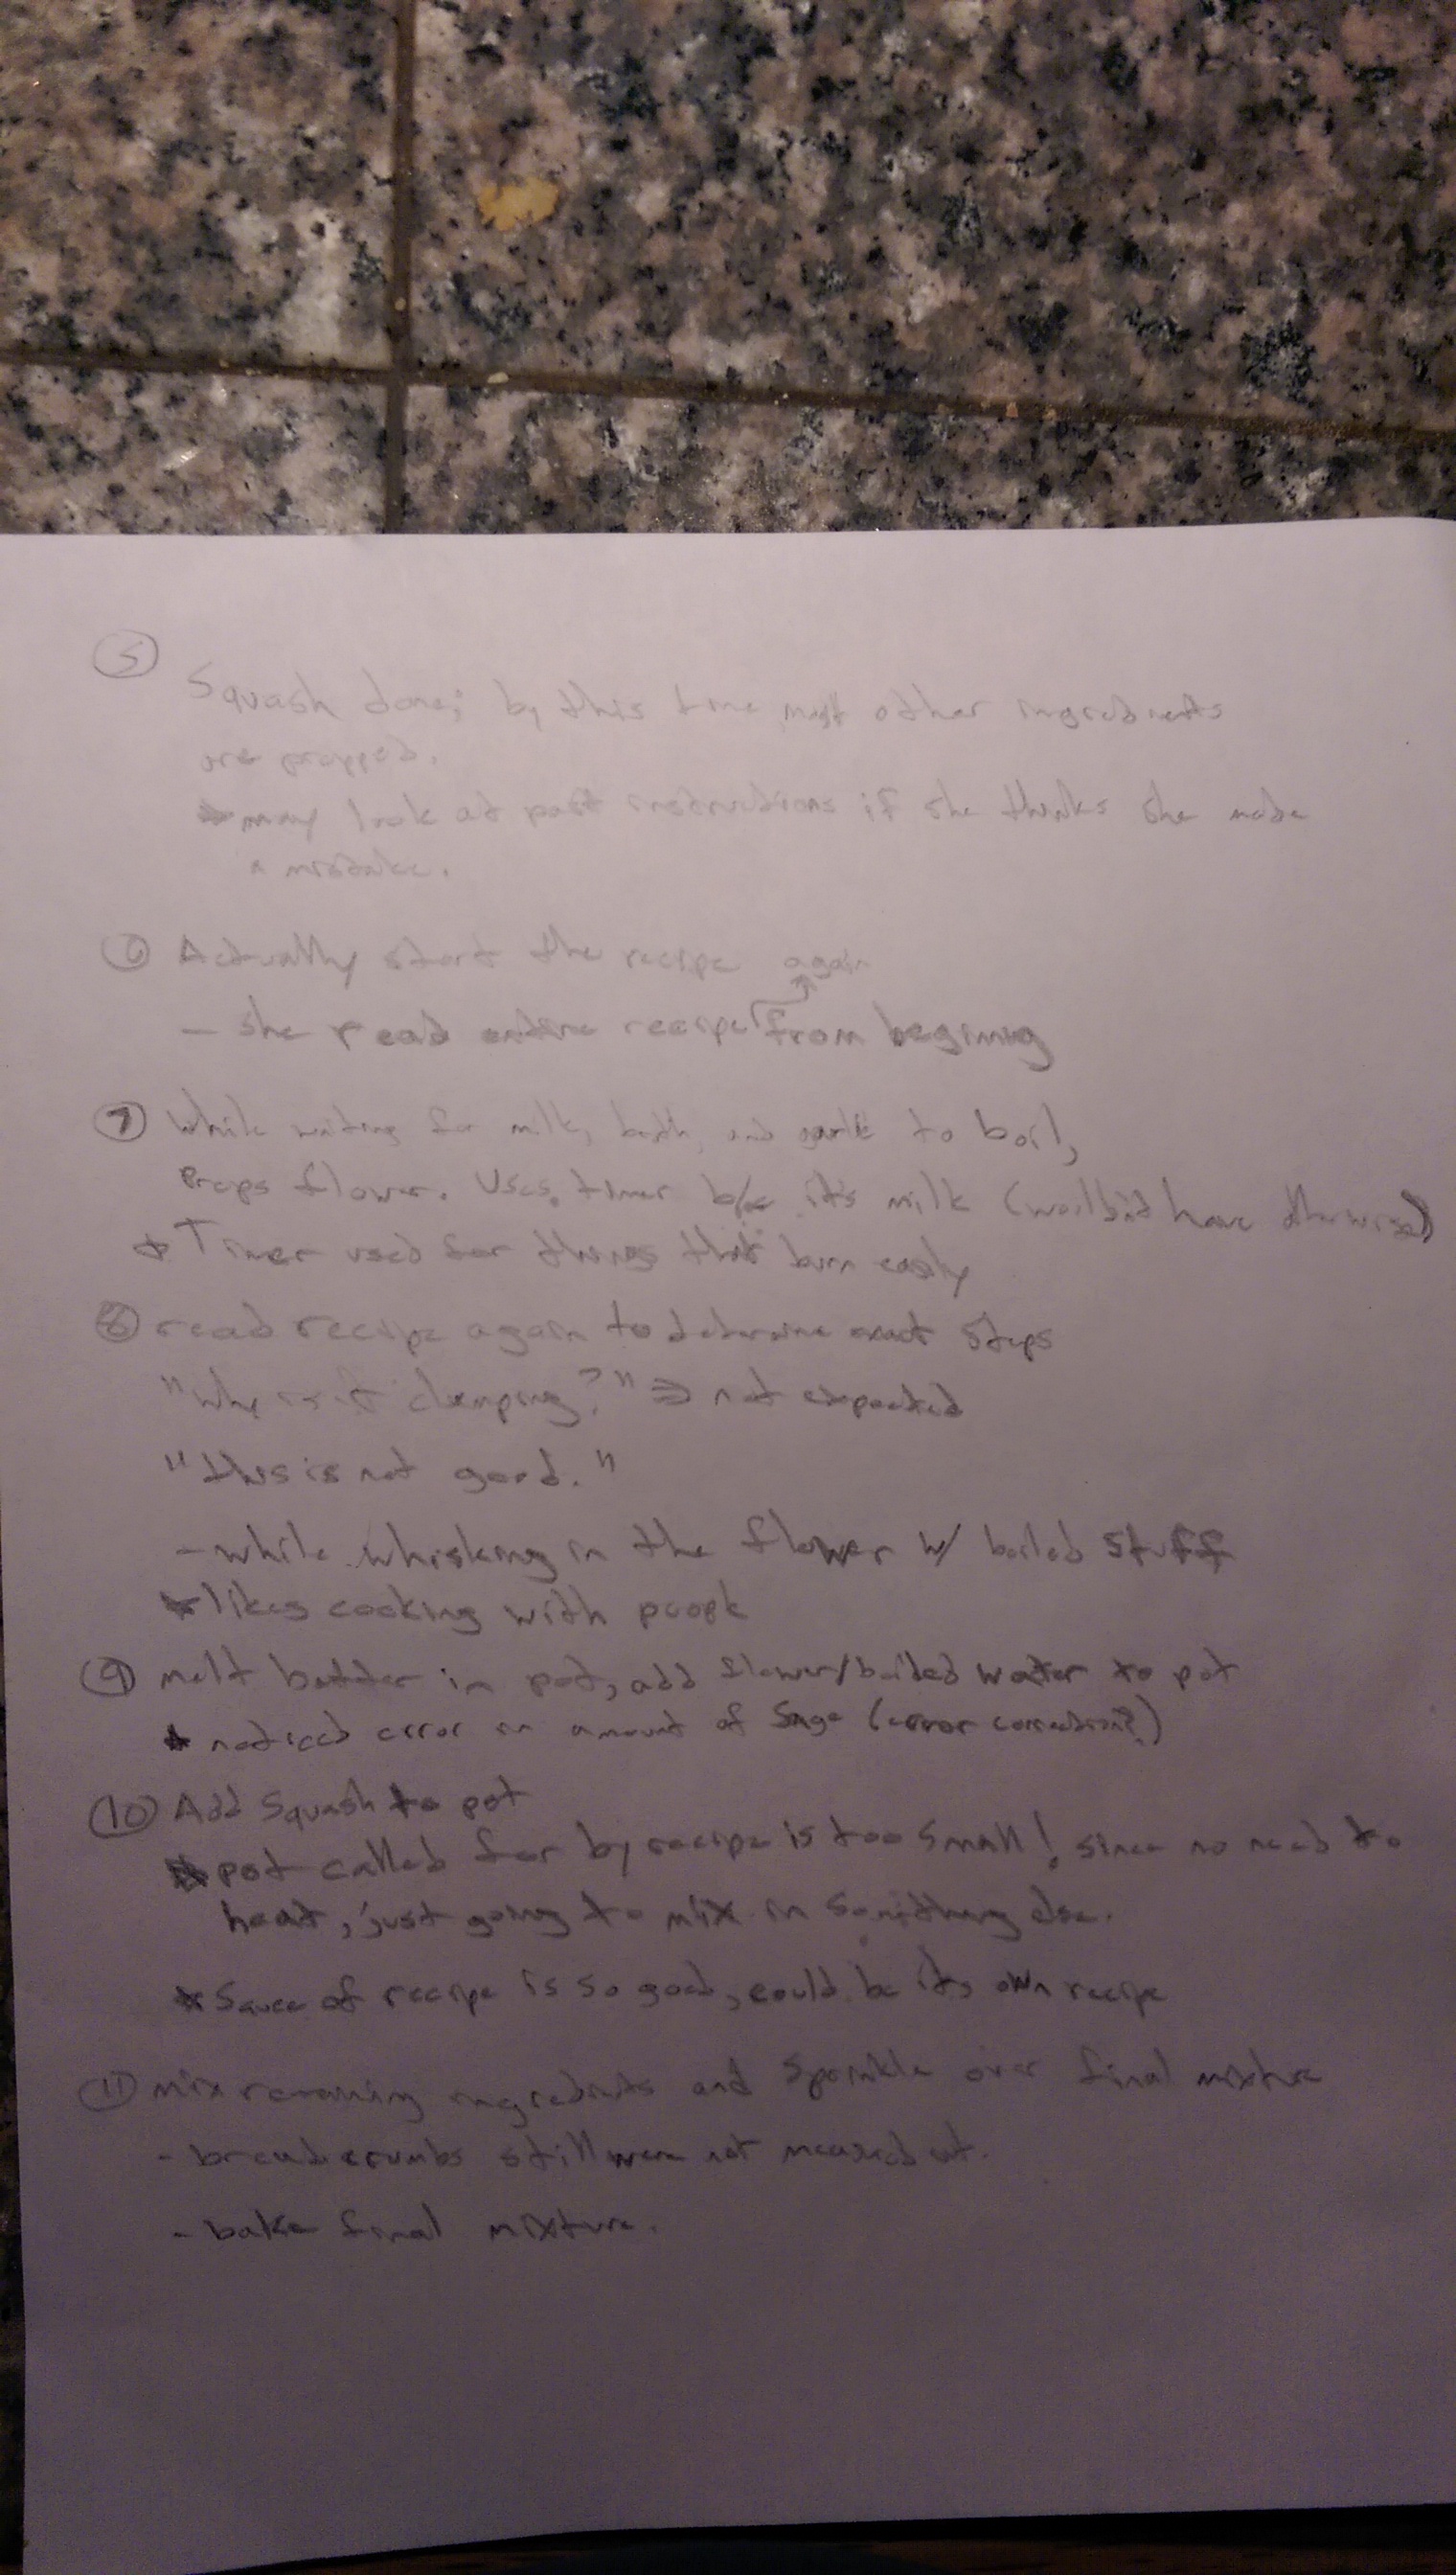 5
Squash done; by this time most other ingredients
are prepped.
* may look at past instructions if she thinks she made
a mistake.
6 Actually start the recipe again
- she read entire recipe from beginning
7 While waiting for milk, broth, and garlic to boil,
Preps flower. Uses timer b/c it's milk (wouldn't have otherwise)
* Timer used for things that burn easily
8 read recipe again to determine exact steps
"Why is it clumping?" => not expected
"this is not good."
- while whisking in the flower w/ boiled stuff
* likes cooking with people
9 melt butter in pot, add flower/boiled water to pot
* noticed error in amount of Sage (error correction?)
10 Add Squash to pot
* pot called for by recipe is too small! since no need to
heat, just going to mix in something else.
* Sauce of recipe is so good, could be its own recipe
11 mix remaining ingredients and sprinkle over final mixture
- bread crumbs still were not measured out.
- bake final mixture.